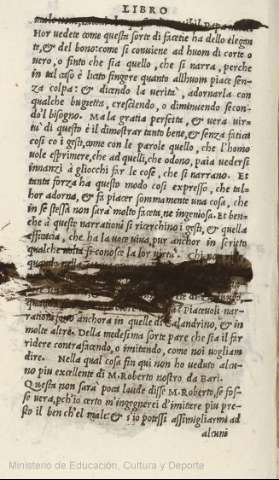 LIBRO
Hor vedete come questa sorte di facetie ha dello elegan
te, & del bono: come si conviene ad huom di corte o
vero, o finto che sia quello, che si narra, perche
in tal caso è licito fingere quanto allhuom piace sen-
za colpa: & dicendo la verità, adornarla con
qualche bugietta, crescendo, o diminuendo secon-
do'l bisogno. Ma la gratia perfetta, & vera vir-
tu di questo è il dimostrar tanto bene, & senza fatica
cosi co i gesti, come con le parole quello, che l'homo
vole esprimere, che ad quelli, che odono, paia vedersi
innanzi à gliocchi far le cose, che si narrano. Et
tanta forza ha questo modo cosi expresso, che tal-
hor adorna, & fa piacer sommamente una cosa, che
in se stessa non sarà molto faceta, ne ingeniosa. Et ben-
che à queste narrationi si ricerchino i gesti, & quella
efficacia, che ha la voce viva, pur anchor in scritto
qualche volta si conosce la lor virtù. Chi
Piacevoli nar-
rationi sono anchora in quelle di Calandrino, & in
molte altre. Della medesima sorte pare che sia il far
ridere contrafacendo, o imitando, come noi vogliam
dire. Nella qual cosa fin qui non ho veduto alcu-
no piu excellente di M. Roberto nostro da Bari.
Questa non sarà poca laude disse M. Roberto, se fos-
se vera, pch'io certo m'ingegnerei d'imitare piu pre-
sto il ben ch'el male: & s'io potessi assimigliarmi ad
alcuni
Ministerio de Educación, Cultura y Deporte